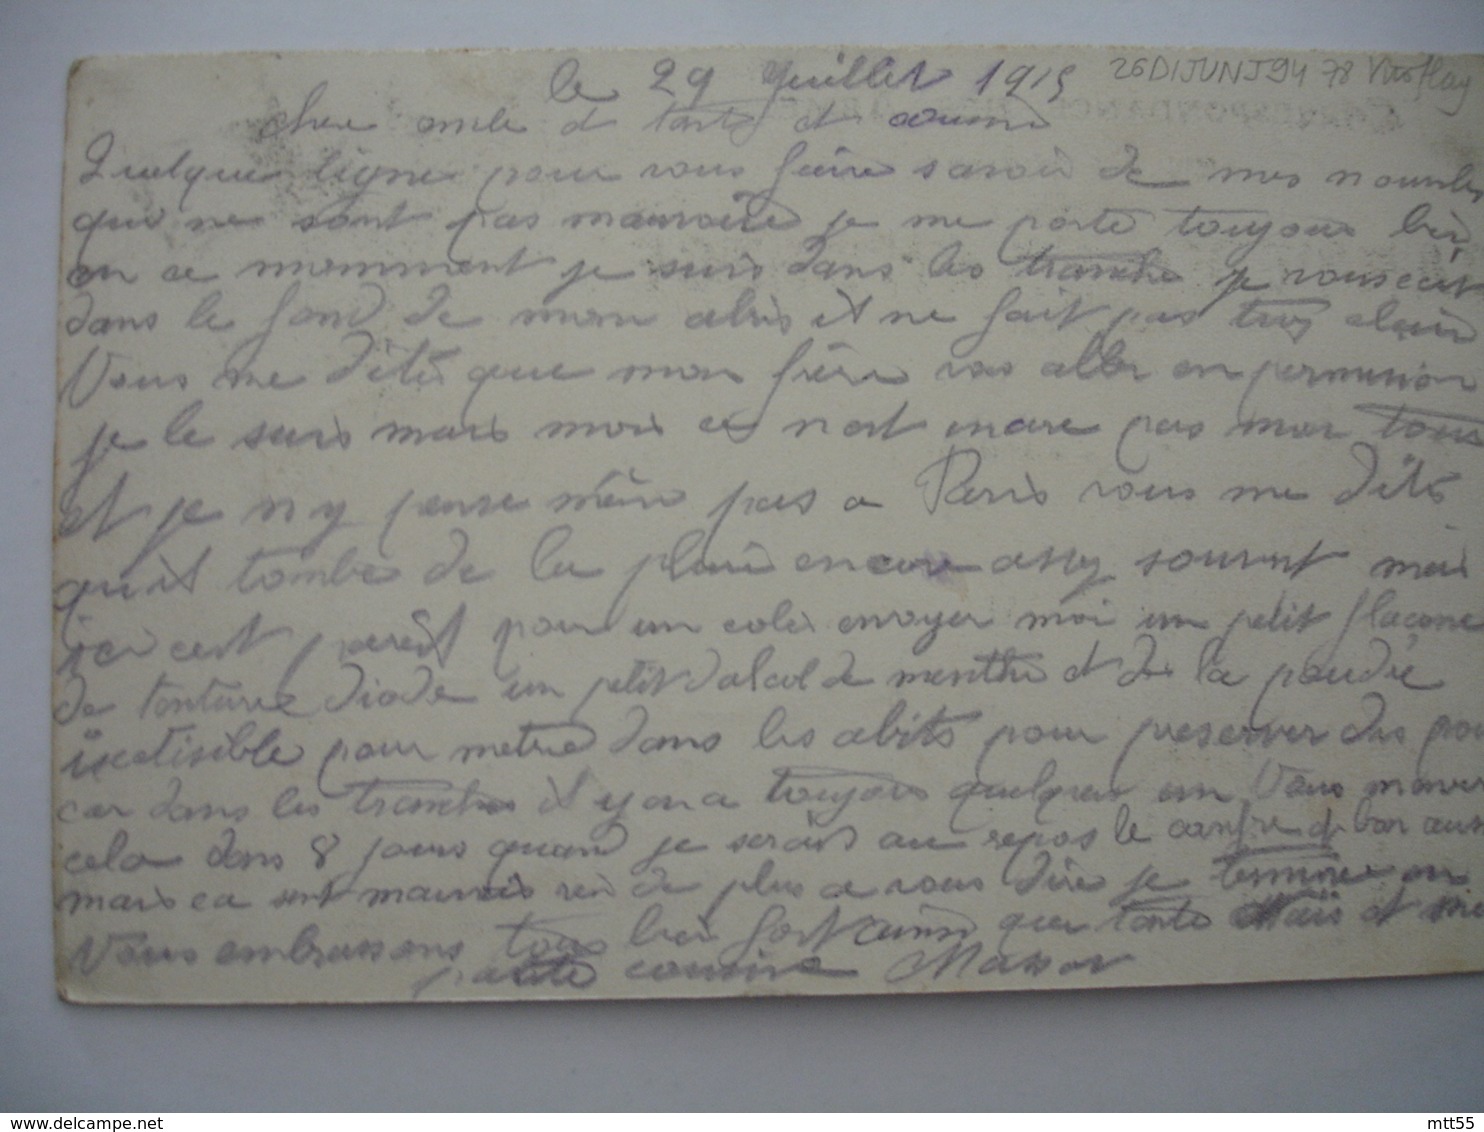 le 29 Juillet 1915
26DIJUNT94 78 Viroflay
CORRESPONDANCE
cher oncle et tante et cousine
Quelque ligne pour vous faire savoir de mes nouvelles
qui ne sont pas mauvaise je me porte toujour bien
en ce momment je suis dans les tranche je vous ecrit
dans le fond de mon abris il ne fait pas trop clair
Vous me dite que mon frère vas aller en permission
je le sais mais moi ce n'est encore pas mon tour
et je n y pense même pas a Paris vous me dite
qu'il tombe de la pluie encore assez souvent mais
ici cest pareil pour un coli envoyer moi un petit flacone
de tenture diode un petit dalcol de menthe et de la poudre
insetisible pour metre dans les abits pour preserver des poux
car dans les tranches il y en a toujours quelques un Vous
cela dans 8 jours quand je serais au repos le
mais ca sert mauvais rien de plus a vous dire je termine en
Vous embrassans tous bien fort ainsi que tante et
petite cousine
mtt55